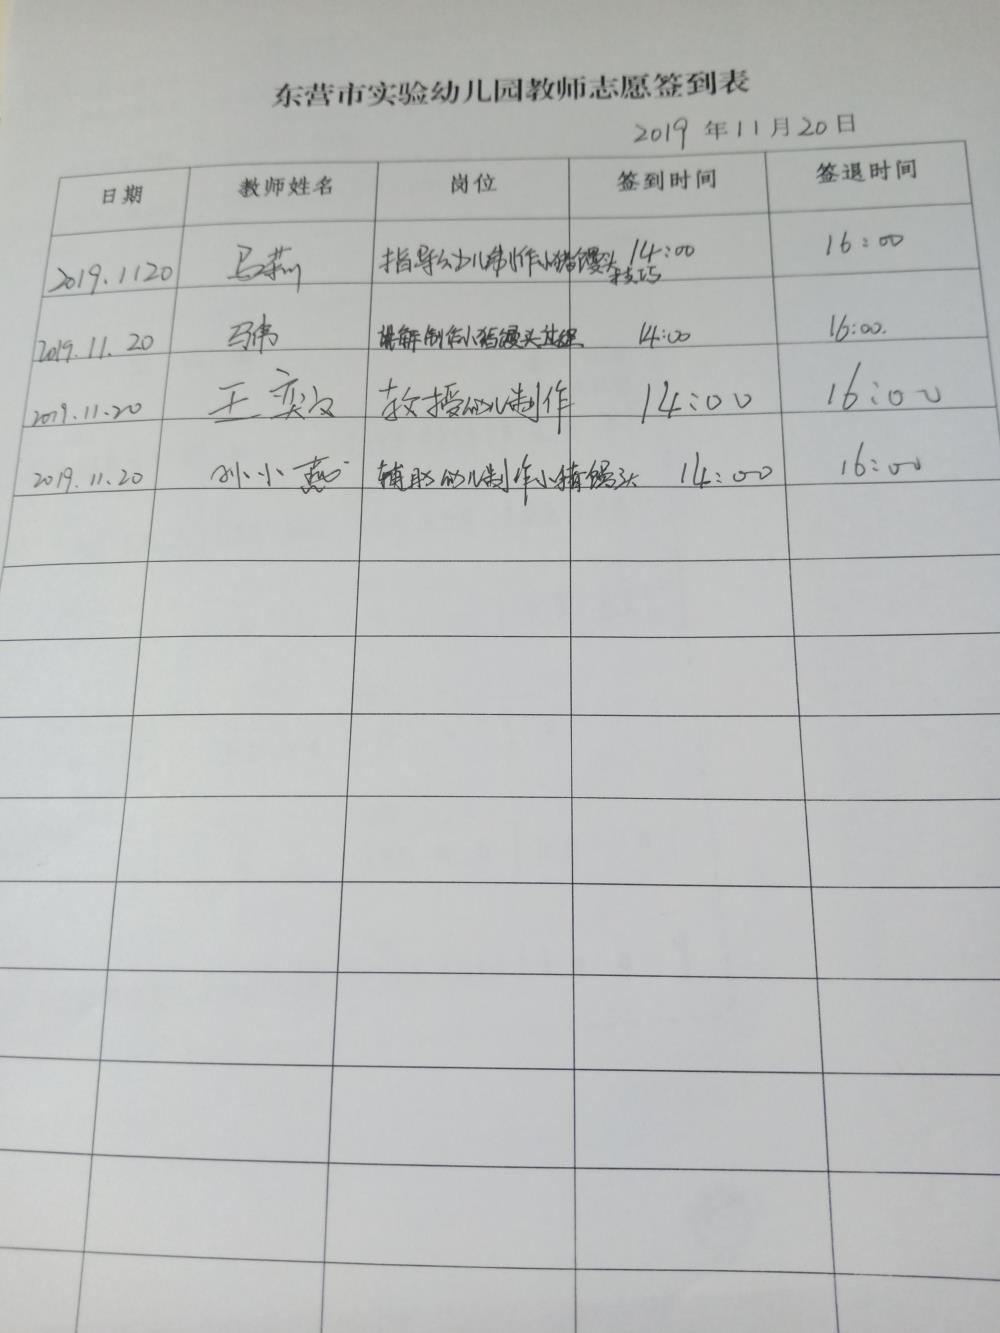 东营市实验幼儿园教师志愿签到表
2019 年 11 月 20 日
日期 教师姓名 岗位 签到时间 签退时间
2019.11 20 马莉 指导幼儿制作小猪馒头技巧 14:00 16:00
2019.11.20 马伟 讲解制作小猪馒头过程 14:00 16:00.
2019.11.20 王奕 教授幼儿制作 14:00 16:00
2019.11.20 孙小燕 辅助幼儿制作小猪馒头 14:00 16:00